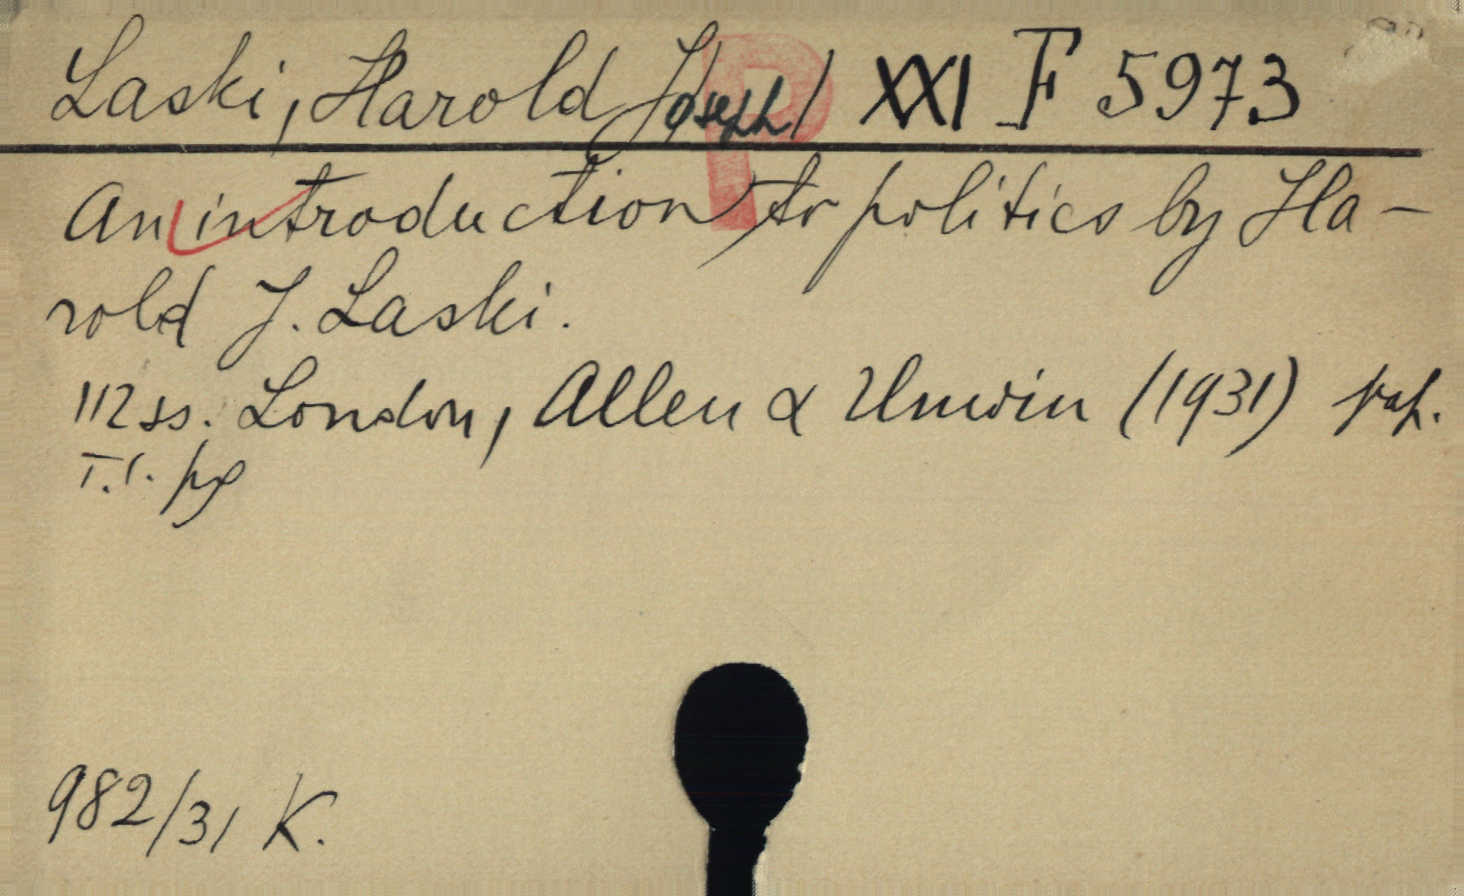 Laski, Harold J/oseph/ XXI F 5973
P
An introduction to politics by Ha-
rold J. Laski.
112 ss. London, Allen & Unwin (1931)
982/31 K.